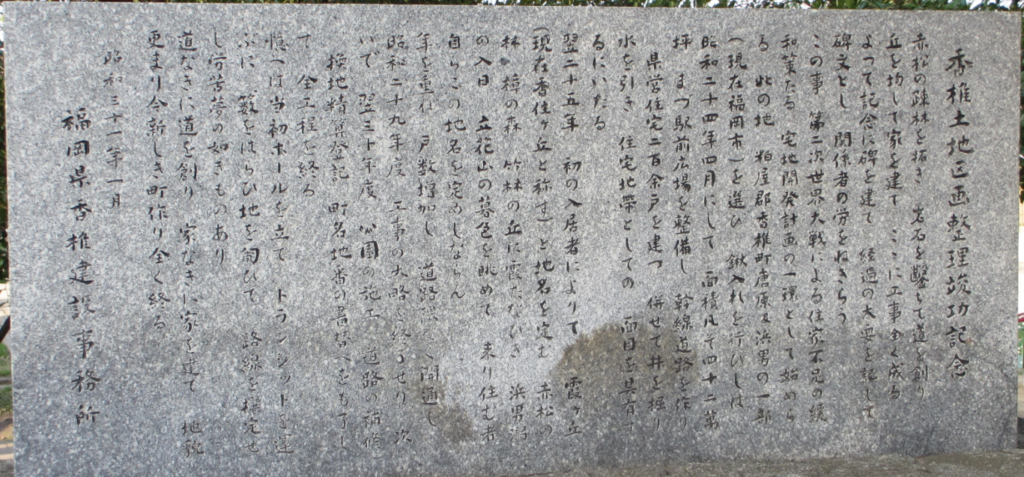 香椎土地区画整理竣功記念
赤松の疎林を拓き 岩石を鑿して道を創り
丘を均して家を建て ここに工事全く成る
よって記念に碑を建て 経過の大要を録して
碑文とし 関係者の労をねぎらう
この事 第二次世界大戦による住家不足の緩
和策たる 宅地開発計画の一環として始めら
る 此の地 粕屋郡香椎町唐原 浜男の一部
(現在福岡市)を選び 鍬入れを行ひしは
昭和二十四年四月にして 面積凡そ四十二萬
坪 まづ駅前広場を整備し 幹線道路を作り
県営住宅二百余戸を建つ 併せて井を掘り
水を引き 住宅地帯としての 面目を具有
るにいたる
翌二十五年 初の入居者によりて 霞ヶ丘
(現在香住ヶ丘と称す)と地名を定む 赤松の
林 樟の森 竹林の丘に霞たなびき 浜男
の入日 立花山の暮色を眺めて 来り住む者
自らこの地名を定めしならん
年を重ね 戸数増加し 道路 開通し
昭和二十九年度 工事の大略を終らせり 次
いで 翌三十年度 公園の施工 道路の補修
換地精算登記 町名地番の書替へをも了し
て 全工程を終る
憶へば当初ポールを立て トランシットを運
ぶに 藪をはらひ地を匍ひて 路線を標定せ
し労苦夢の如きものあり
道なきに道を創り 家なきに家を建て 地
更まり今新しき町作り全く終る
昭和三十一年一月
福岡県香椎建設事務所